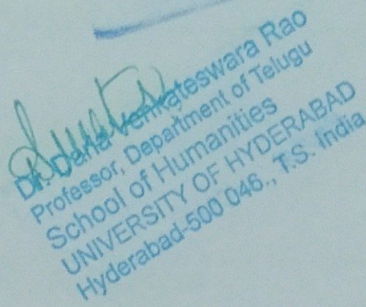 Dr. Darla Venkateswara Rao
Professor, Department of Telugu
School of Humanities
UNIVERSITY OF HYDERABAD
Hyderabad-500 046., T.S. India